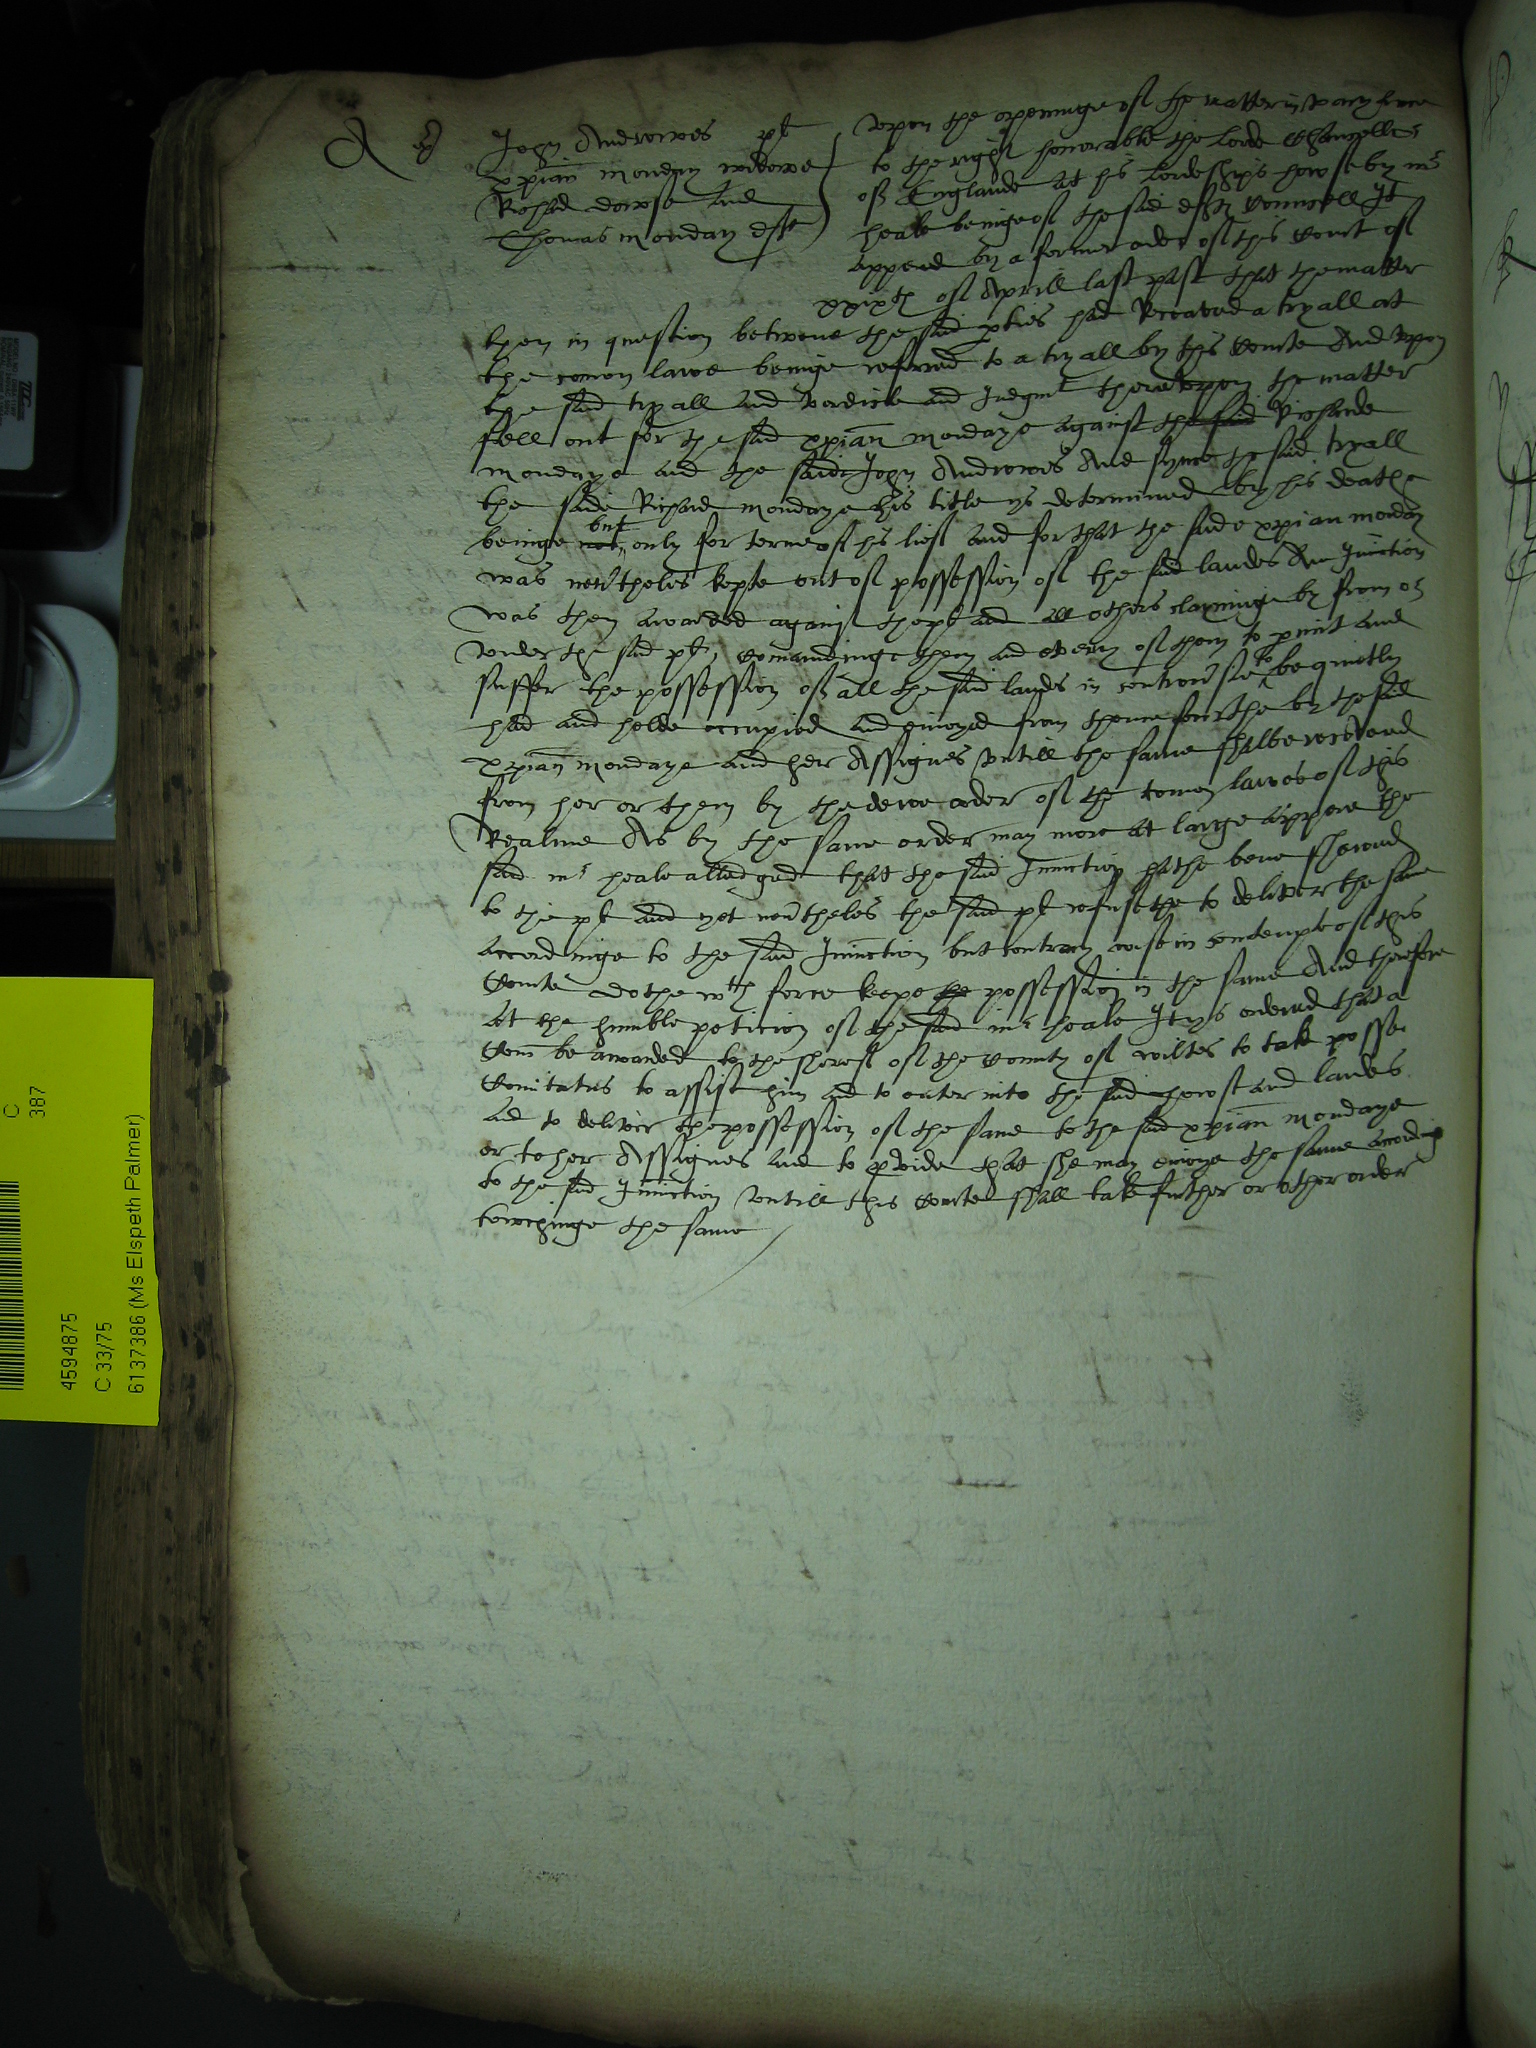 A
John Androwes plt
xpian monday widowe
Richard dowse and
Thomas monday deftes
Upon the openinge of the matter in varyaunce
to the right honorable the lorde Chauncellor
of Englande at his lordeships howse by mr
heale beinge of the said deftes Councell It
appered by a former order of this Court of
xxixth of Aprill last past that the matter
then in question betwene the said pties had Receaved a tryall at
the comon lawe beinge referred to a tryall by this Courte And upon
the said tryall and verdicte and Judgmt thereuppon the matter
fell out for the said xpian mondaye against the said Richarde
mondaye and the said John Androwes And synce the said tryall
the saide Richard mondaye his title ys determined by his deathe
beinge not but only for terme of his lief and for that the saide xpian monday
was nevertheles kepte out of possession of the said landes An Iniunction
was then awarded against the plt and all others clayminge by from or
under the said plt, comaundinge them and every of them to pmit and
suffer the possession of all the said lands in controversie to be quietly
had and helde occupied and enioyed from thenceforthe by the said
xpian mondaye and her Assignes untill the same shalbe recovered
from her or them by the dewe order of the comon lawes of this
Realme As by the same order may more at large appere the
said mr heale alledged that the said Iniunction hathe bene shewed
to the plt and yet nevertheles the said plt refusethe to deliver the same
accordinge to the said Iniunction but contrary wise in contempte of this
Courte dothe wth force kepe the possession in the same And therefore
At the humble peticion of the said mr heale It ys ordered that a
Comn be awarded to the sheref of the County of wiltes to take posse
Comitatus to assist him and to enter into the said howse and landes
and to deliver the possession of the same to the said xpian mondaye
or to her Assignes and to pvide that she may enioye the same accordinge
to the said Iniunction untill this Courte shall take further or other order
towchinge the same
C
387
4594875
C 33/75
6137386 (Ms Elspeth Palmer)